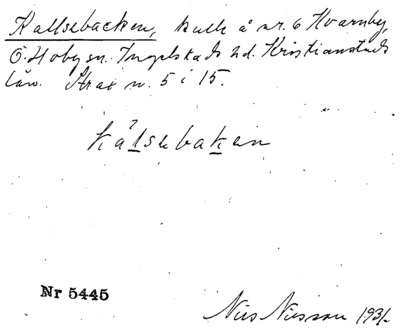 Kallsebacken, kulle å nr. 6 Hvarnby,
Ö. Hoby sn. Ingelstads hd. Kristianstads
län. Strax n. 5 i 15.
kålsebaken
Nr 5445
Nils Nilsson 1931.